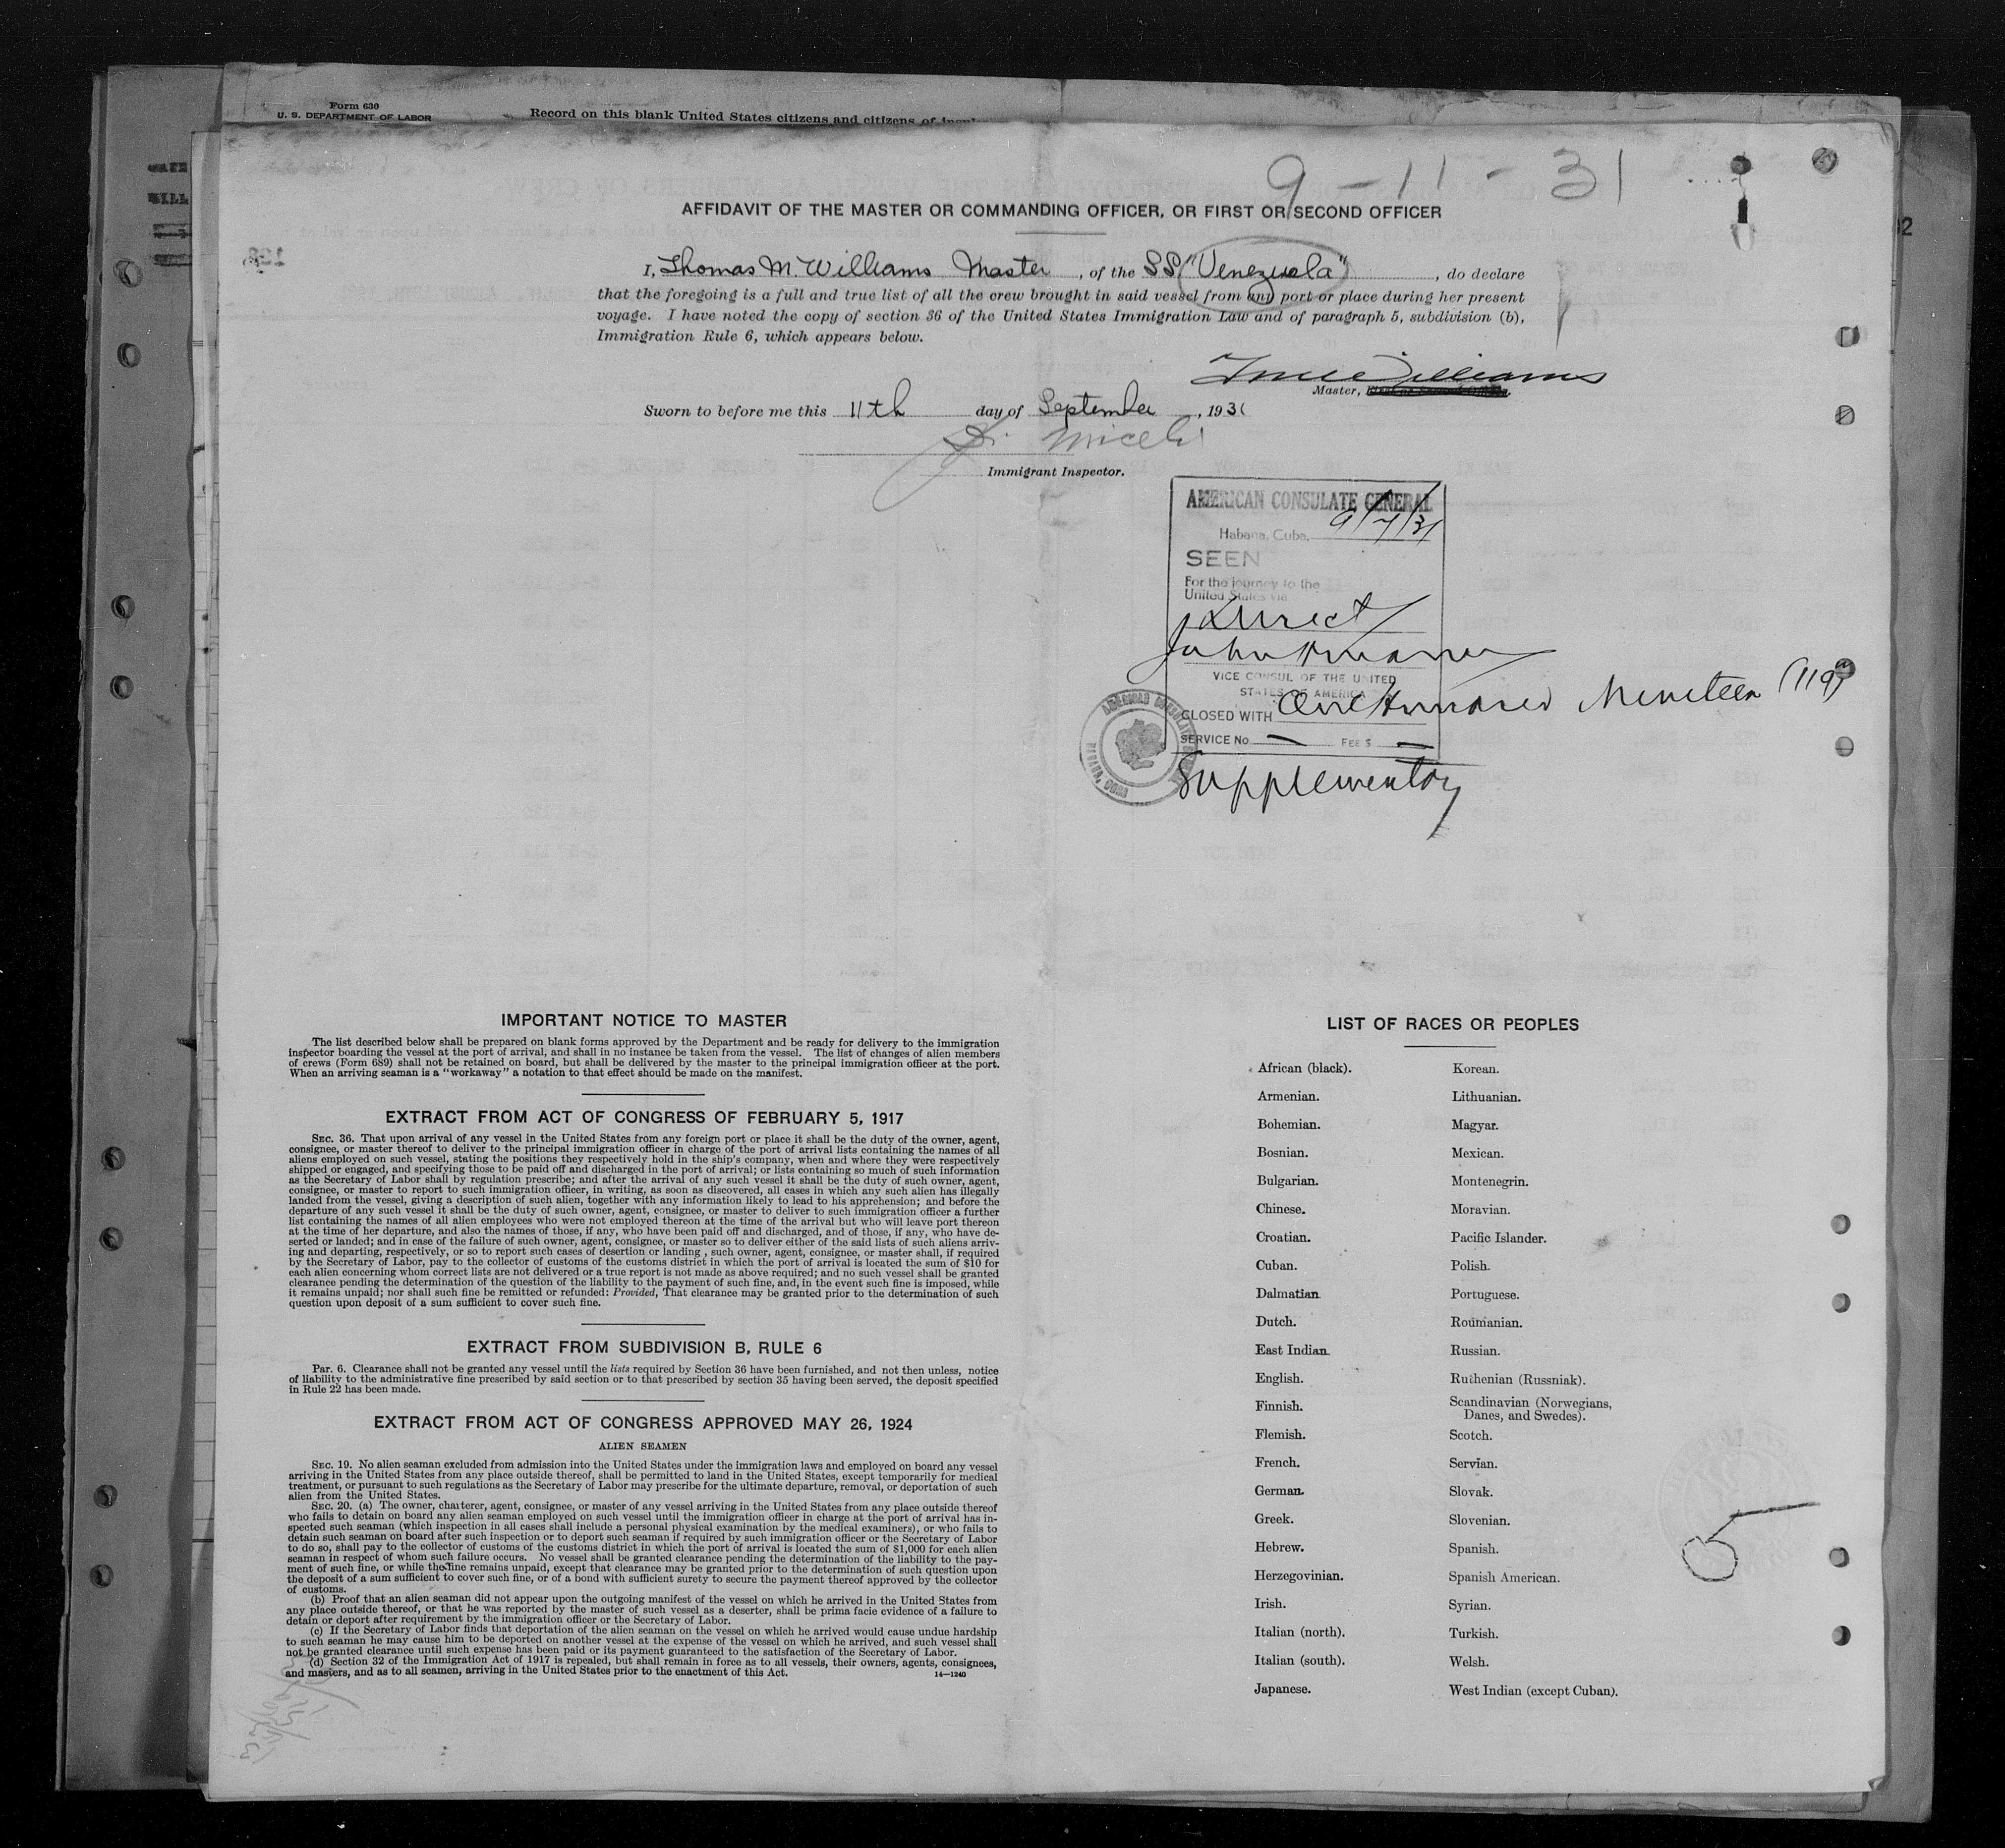 Form 630
U. S. DEPARTMENT OF LABOR
Record on this blank United States citizens and citizens of
9-11-31
AFFIDAVIT OF THE MASTER OR COMMANDING OFFICER, OR FIRST OR SECOND OFFICER
I, Thomas M. Williams Master, of the SS "Venezuela", do declare
that the foregoing is a full and true list of all the crew brought in said vessel from any port or place during her present
voyage. I have noted the copy of section 36 of the United States Immigration Law and of paragraph 5, subdivision (b),
Immigration Rule 6, which appears below.
Williams
Master,
Sworn to before me this 11th day of September, 1931
Immigrant Inspector.
AMERICAN CONSULATE GENERAL
Habana, Cuba, 9/7/31
SEEN
For the journey to the
United States via
Direct
John
VICE CONSUL OF THE UNITED
STATES OF AMERICA
CLOSED WITH One Hundred Nineteen (119)
SERVICE No — FEE $ —
Supplementary
IMPORTANT NOTICE TO MASTER
The list described below shall be prepared on blank forms approved by the Department and be ready for delivery to the immigration
inspector boarding the vessel at the port of arrival, and shall in no instance be taken from the vessel. The list of changes of alien members
of crews (Form 689) shall not be retained on board, but shall be delivered by the master to the principal immigration officer at the port.
When an arriving seaman is a "workaway" a notation to that effect should be made on the manifest.
EXTRACT FROM ACT OF CONGRESS OF FEBRUARY 5, 1917
SEC. 36. That upon arrival of any vessel in the United States from any foreign port or place it shall be the duty of the owner, agent,
consignee, or master thereof to deliver to the principal immigration officer in charge of the port of arrival lists containing the names of all
aliens employed on such vessel, stating the positions they respectively hold in the ship's company, when and where they were respectively
shipped or engaged, and specifying those to be paid off and discharged in the port of arrival; or lists containing so much of such information
as the Secretary of Labor shall by regulation prescribe; and after the arrival of any such vessel it shall be the duty of such owner, agent,
consignee, or master to report to such immigration officer, in writing, as soon as discovered, all cases in which any such alien has illegally
landed from the vessel, giving a description of such alien, together with any information likely to lead to his apprehension; and before the
departure of any such vessel it shall be the duty of such owner, agent, consignee, or master to deliver to such immigration officer a further
list containing the names of all alien employees who were not employed thereon at the time of the arrival but who will leave port thereon
at the time of her departure, and also the names of those, if any, who have been paid off and discharged, and of those, if any, who have de-
serted or landed; and in case of the failure of such owner, agent, consignee, or master so to deliver either of the said lists of such aliens arriv-
ing and departing, respectively, or so to report such cases of desertion or landing, such owner, agent, consignee, or master shall, if required
by the Secretary of Labor, pay to the collector of customs of the customs district in which the port of arrival is located the sum of $10 for
each alien concerning whom correct lists are not delivered or a true report is not made as above required; and no such vessel shall be granted
clearance pending the determination of the question of the liability to the payment of such fine, and, in the event such fine is imposed, while
it remains unpaid; nor shall such fine be remitted or refunded: Provided, That clearance may be granted prior to the determination of such
question upon deposit of a sum sufficient to cover such fine.
EXTRACT FROM SUBDIVISION B, RULE 6
Par. 6. Clearance shall not be granted any vessel until the lists required by Section 36 have been furnished, and not then unless, notice
of liability to the administrative fine prescribed by said section or to that prescribed by section 35 having been served, the deposit specified
in Rule 22 has been made.
EXTRACT FROM ACT OF CONGRESS APPROVED MAY 26, 1924
ALIEN SEAMEN
SEC. 19. No alien seaman excluded from admission into the United States under the immigration laws and employed on board any vessel
arriving in the United States from any place outside thereof, shall be permitted to land in the United States, except temporarily for medical
treatment, or pursuant to such regulations as the Secretary of Labor may prescribe for the ultimate departure, removal, or deportation of such
alien from the United States.
SEC. 20. (a) The owner, charterer, agent, consignee, or master of any vessel arriving in the United States from any place outside thereof
who fails to detain on board any alien seaman employed on such vessel until the immigration officer in charge at the port of arrival has in-
spected such seaman (which inspection in all cases shall include a personal physical examination by the medical examiners), or who fails to
detain such seaman on board after such inspection or to deport such seaman if required by such immigration officer or the Secretary of Labor
to do so, shall pay to the collector of customs of the customs district in which the port of arrival is located the sum of $1,000 for each alien
seaman in respect of whom such failure occurs. No vessel shall be granted clearance pending the determination of the liability to the pay-
ment of such fine, or while the fine remains unpaid, except that clearance may be granted prior to the determination of such question upon
the deposit of a sum sufficient to cover such fine, or of a bond with sufficient surety to secure the payment thereof approved by the collector
of customs.
(b) Proof that an alien seaman did not appear upon the outgoing manifest of the vessel on which he arrived in the United States from
any place outside thereof, or that he was reported by the master of such vessel as a deserter, shall be prima facie evidence of a failure to
detain or deport after requirement by the immigration officer or the Secretary of Labor.
(c) If the Secretary of Labor finds that deportation of the alien seaman on the vessel on which he arrived would cause undue hardship
to such seaman he may cause him to be deported on another vessel at the expense of the vessel on which he arrived, and such vessel shall
not be granted clearance until such expense has been paid or its payment guaranteed to the satisfaction of the Secretary of Labor.
(d) Section 32 of the Immigration Act of 1917 is repealed, but shall remain in force as to all vessels, their owners, agents, consignees,
and masters, and as to all seamen, arriving in the United States prior to the enactment of this Act.
14—1240
LIST OF RACES OR PEOPLES
African (black). Korean.
Armenian. Lithuanian.
Bohemian. Magyar.
Bosnian. Mexican.
Bulgarian. Montenegrin.
Chinese. Moravian.
Croatian. Pacific Islander.
Cuban. Polish.
Dalmatian Portuguese.
Dutch. Roumanian.
East Indian. Russian.
English. Ruthenian (Russniak).
Finnish. Scandinavian (Norwegians,
Danes, and Swedes).
Flemish. Scotch.
French. Servian.
German. Slovak.
Greek. Slovenian.
Hebrew. Spanish.
Herzegovinian. Spanish American.
Irish. Syrian.
Italian (north). Turkish.
Italian (south). Welsh.
Japanese. West Indian (except Cuban).
5